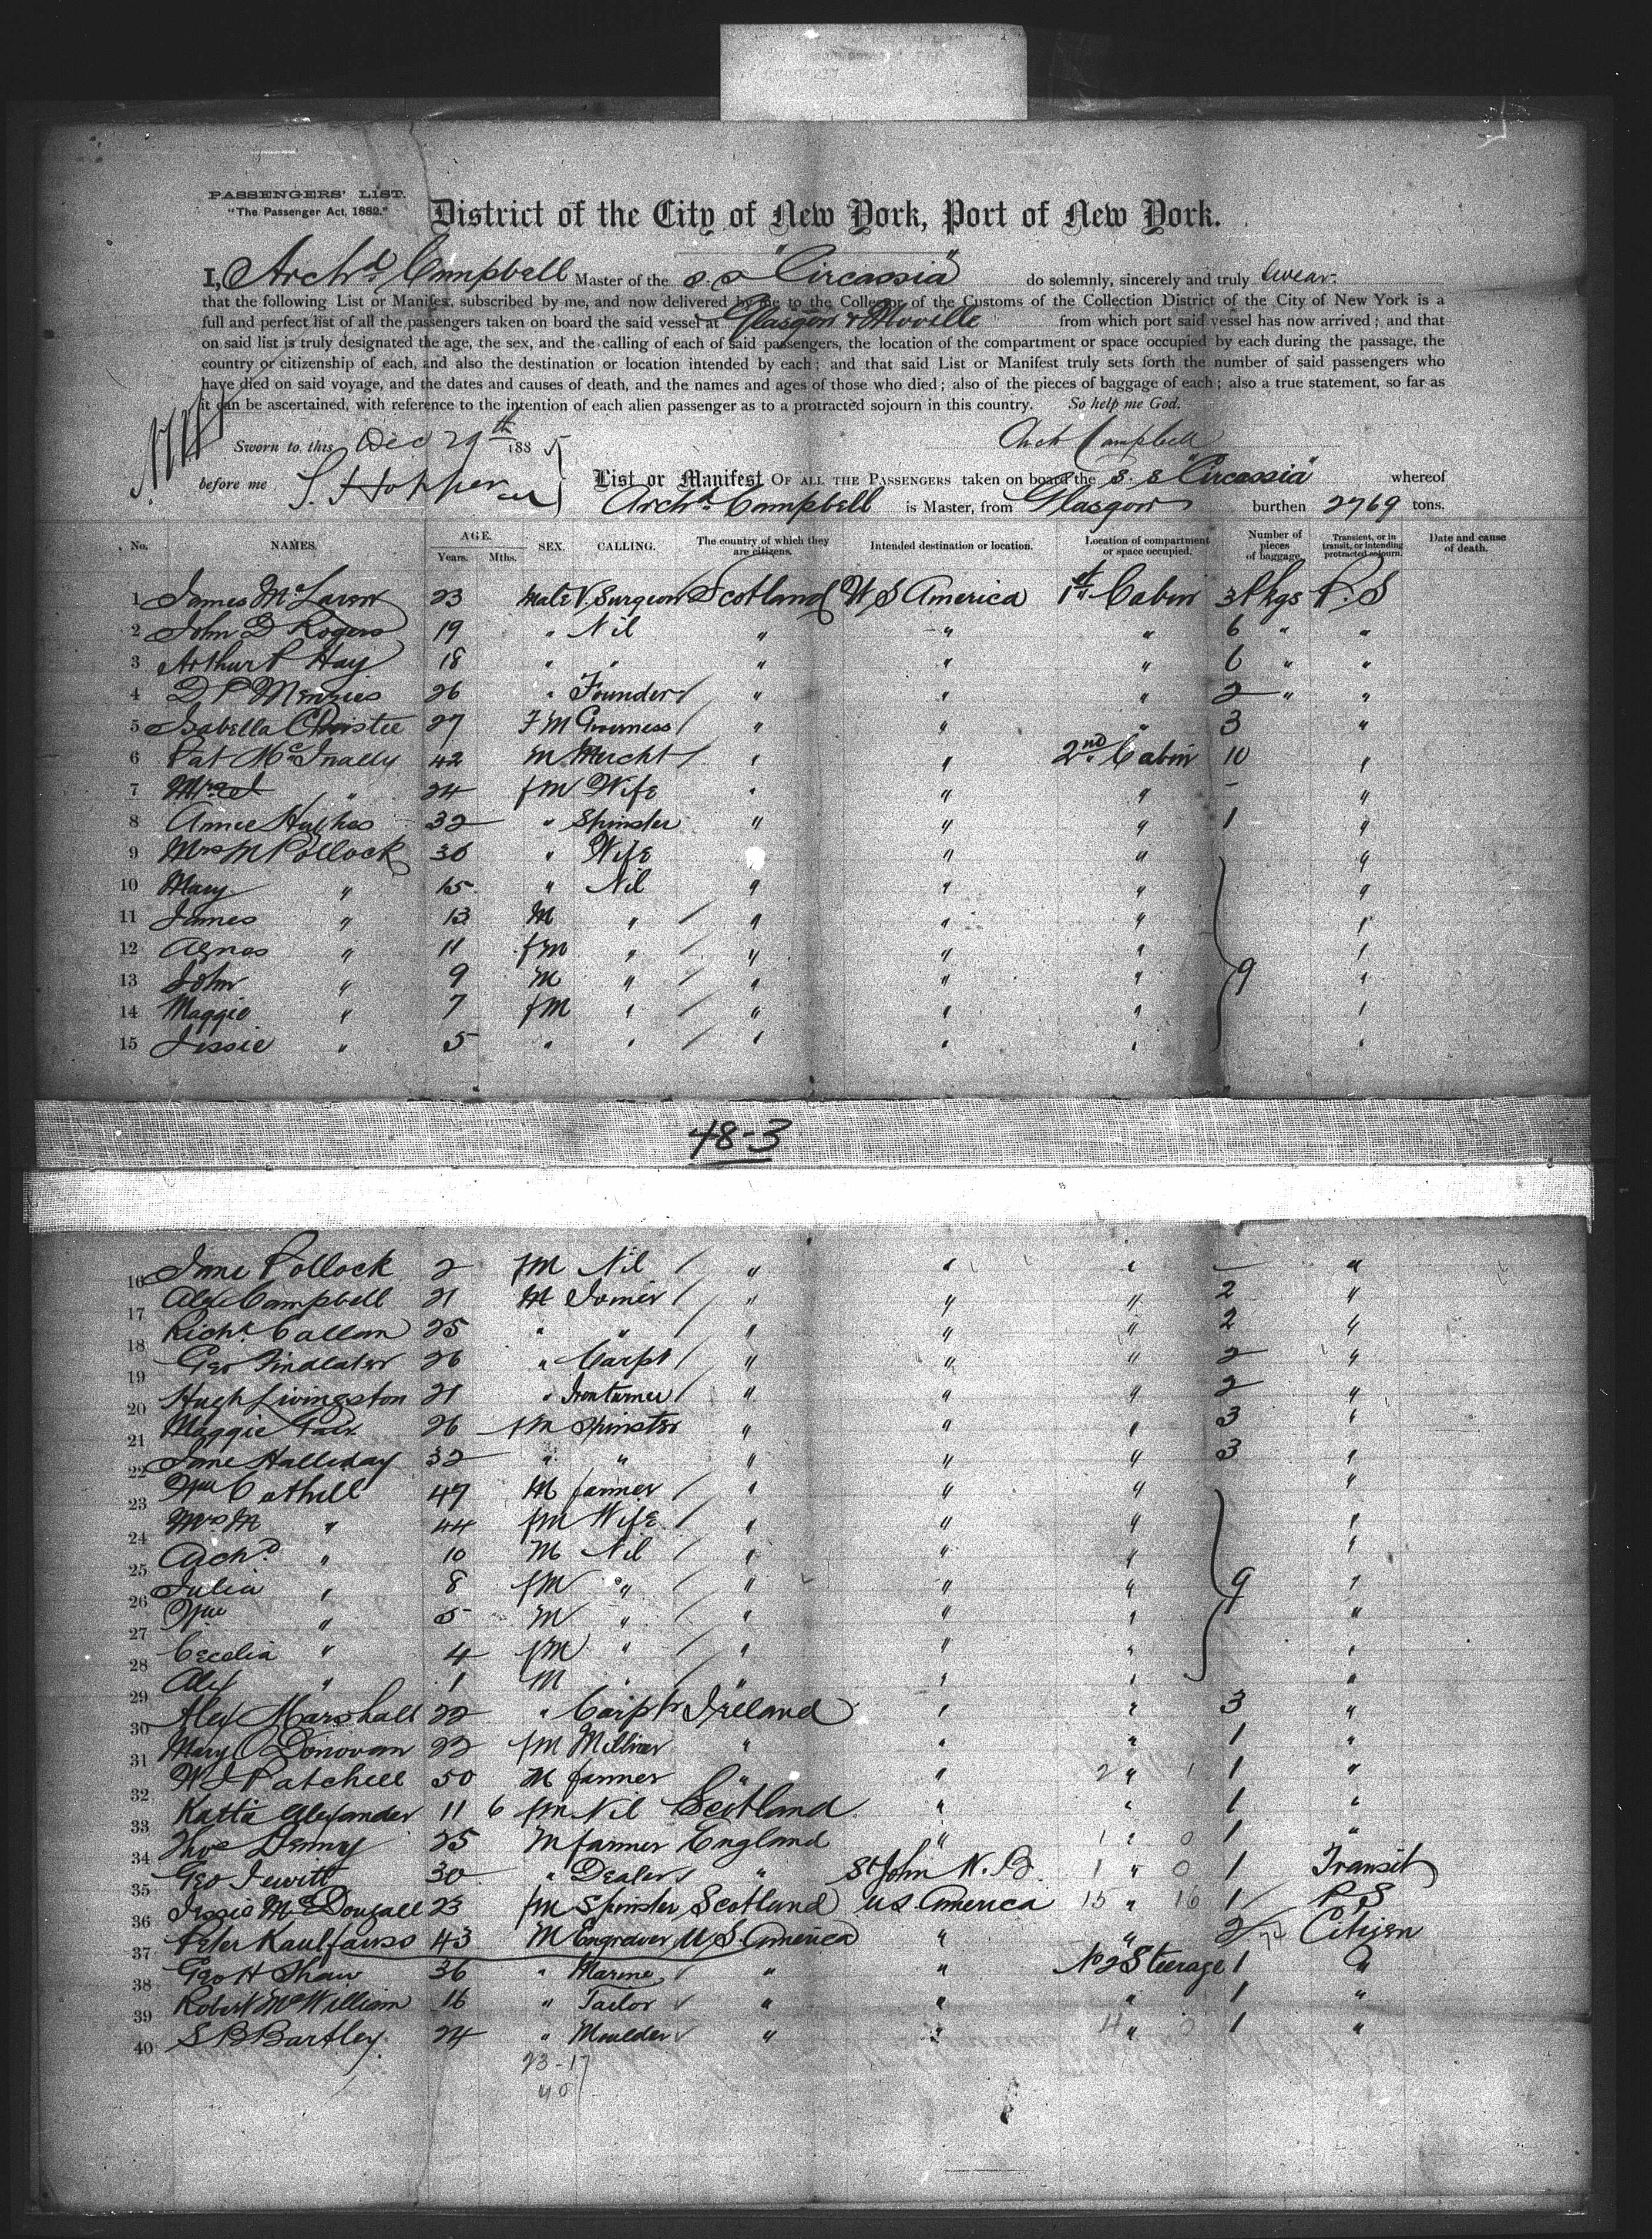 PASSENGERS' LIST.
"The Passenger Act, 1882."
District of the City of New York, Port of New York.
I, Archd Campbell Master of the S.S "Circassia" do solemnly, sincerely and truly swear.
that the following List or Manifest, subscribed by me, and now delivered by me to the Collector of the Customs of the Collection District of the City of New York is a
full and perfect list of all the passengers taken on board the said vessel at Glasgow & Moville from which port said vessel has now arrived; and that
on said list is truly designated the age, the sex, and the calling of each of said passengers, the location of the compartment or space occupied by each during the passage, the
country or citizenship of each, and also the destination or location intended by each; and that said List or Manifest truly sets forth the number of said passengers who
have died on said voyage, and the dates and causes of death, and the names and ages of those who died; also of the pieces of baggage of each; also a true statement, so far as
it can be ascertained, with reference to the intention of each alien passenger as to a protracted sojourn in this country. So help me God.
Sworn to this Dec 29th 1885 Arch Campbell
before me
List or Manifest OF ALL THE PASSENGERS taken on board the S. S "Circassia" whereof
Archd Campbell is Master, from Glasgow burthen 2769 tons.
No. NAMES. AGE. Years. Mths. SEX. CALLING. The country of which they are citizens. Intended destination or location. Location of compartment or space occupied. Number of pieces of baggage Transient, or in transit, or intending protracted sojourn. Date and cause of death.
1 James McLaren 23 Male V. Surgeon Scotland U S America 1st Cabin 3 Pkgs P. S
2 John D Rogers 19 " Nil " " " 6 " "
3 Arthur P Hay 18 " " " " " 6 " "
4 D P Menzies 26 " Founder " " " 2 " "
5 Isabella Christie 27 F M Governess " " " 3 "
6 Pat McInally 42 M Mercht " " 2nd Cabin 10 "
7 " 24 fM Wife " " " - "
8 Annie Hughes 32 " Spinster " " " 1 "
9 Mrs M Pollock 36 " Wife " " "
10 Mary " 15 " Nil " " " "
11 James " 13 M " " " " "
12 Agnes " 11 fM " " " " "
13 John " 9 M " " " " 9 "
14 Maggie " 7 fM " " " " "
15 Jessie " 5 " " " " " "
48-3
16 Jane Pollock 2 fM Nil " " " - "
17 Alex Campbell 21 M Joiner " " " 2 "
18 Richd Callam 25 " " " " " 2 "
19 Geo Findlater 26 " Carpt " " " 2 "
20 Hugh Livingston 21 " Ironturner " " " 2 "
21 Maggie 26 fM Spinster " " " 3 "
22 Jane Halliday 32 " " " " " 3 "
23 Wm Cathill 47 M farmer " " " "
24 Mrs M " 44 fM Wife " " " "
25 Archd " 10 M Nil " " " "
26 Julia " 8 fM " " " " 9 "
27 Wm " 5 M " " " " "
28 Cecelia " 4 fM " " " " "
29 Alex " 1 M " " " " "
30 Alex Marshall 22 " Carptr Ireland " " 3 "
31 Mary O Donovan 22 fM Milliner " " " 1 "
32 W J Patchell 50 M farmer " " 2 " 1 1 "
33 Katie Alexander 11 6 fM Nil Scotland " " 1 "
34 Thos Denny 25 M farmer England " 1 " 0 1 "
35 Geo Jewitt 30 " Dealer " St John N. B. 1 " 0 1 Transit
36 Jessie McDougall 23 fM Spinster Scotland U S. America 15 " 16 1 P S
37 Peter Kaulfauss 43 M Engraver U S. America " " 2 Citizen
38 Geo H Shaw 36 " Marine " " No 2 Steerage 1 "
39 Robert McWilliam 16 " Tailor " " " 1 "
40 S B Bartley 24 " Moulder " " 4 " 0 1 "
23-17
40